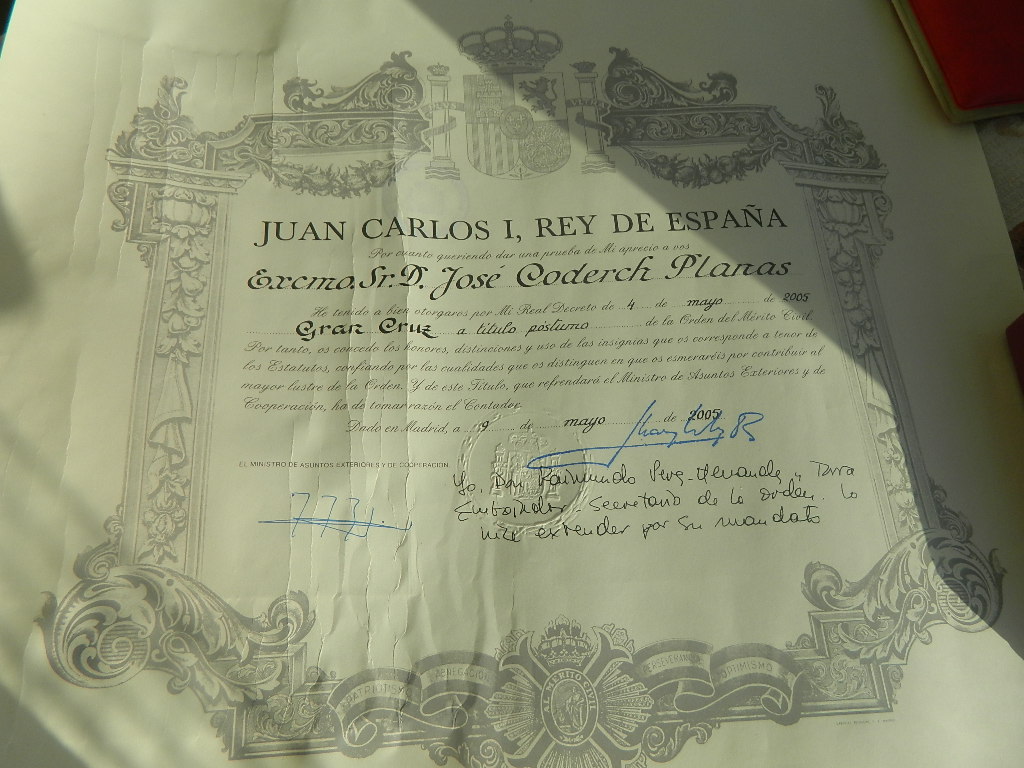 JUAN CARLOS I, REY DE ESPAÑA
Por cuanto queriendo dar una prueba de Mi aprecio a vos
Excmo. Sr. D. José Coderch Planas
He tenido a bien otorgaros por Mi Real Decreto de 4 de mayo de 2005
Gran Cruz a título póstumo de la Orden del Mérito Civil
Por tanto, os concedo los honores, distinciones y uso de las insignias que os corresponde a tenor de
los Estatutos, confiando por las cualidades que os distinguen en que os esmeraréis por contribuir al
mayor lustre de la Orden. Y de este Título, que refrendará el Ministro de Asuntos Exteriores y de
Cooperación, ha de tomar razón el Contador.
Dado en Madrid, a 9 de mayo de 2005
EL MINISTRO DE ASUNTOS EXTERIORES Y DE COOPERACIÓN,
Yo, Don Raimundo Perez-Hernandez y Torra
Embajador Secretario de la Orden, lo
hice extender por su mandato
PATRIOTISMO ABNEGACIÓN PERSEVERANCIA OPTIMISMO
AL MERITO CIVIL